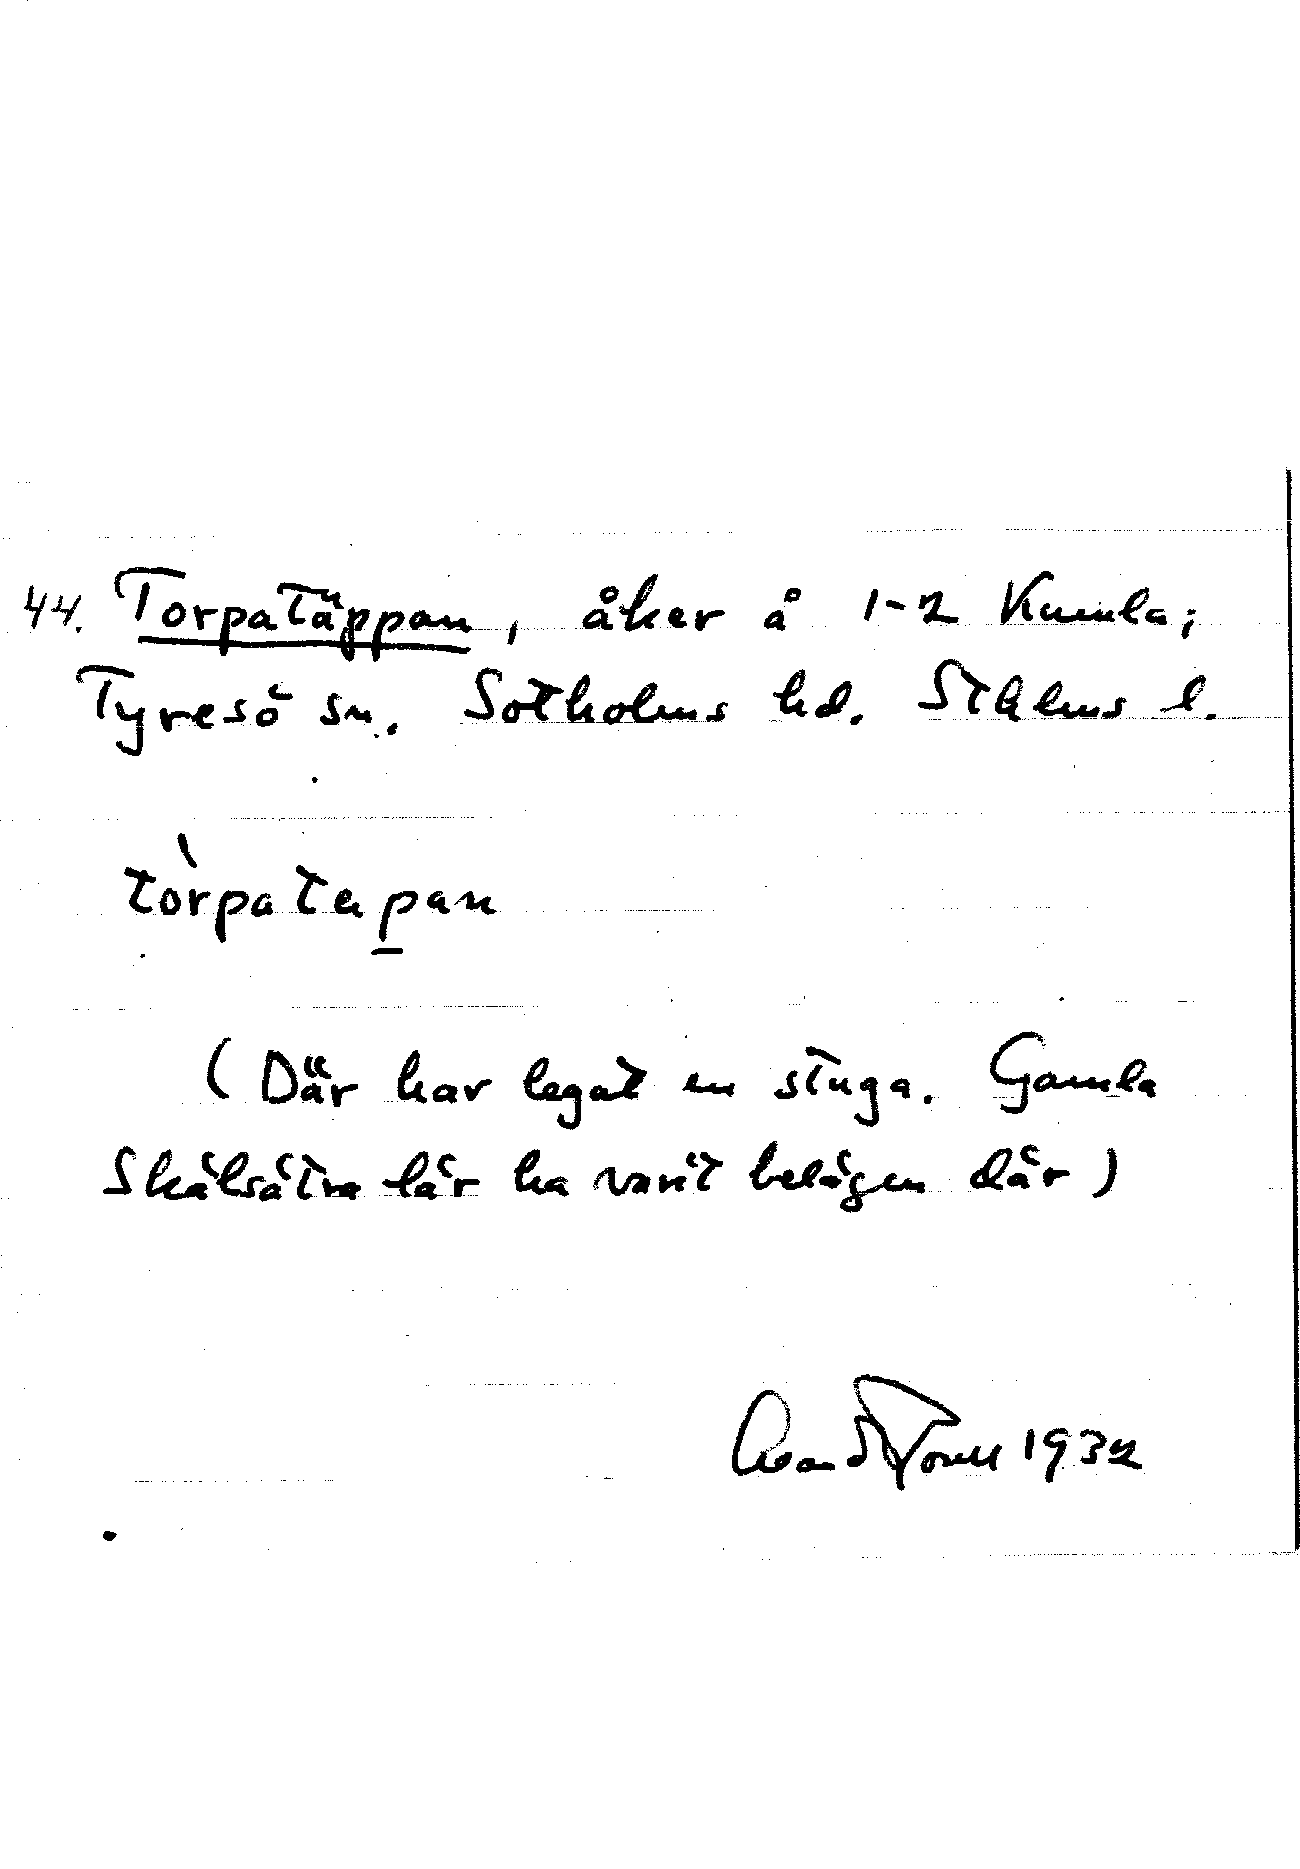 44. Torpatäppan, åker å 1-2 Kumla;
Tyresö sn. Sotholms hd. Sthlms l.
tòrpatäpan
(Där har legat en stuga. Gamla
Skälsätra lär ha varit belägen där)
1932